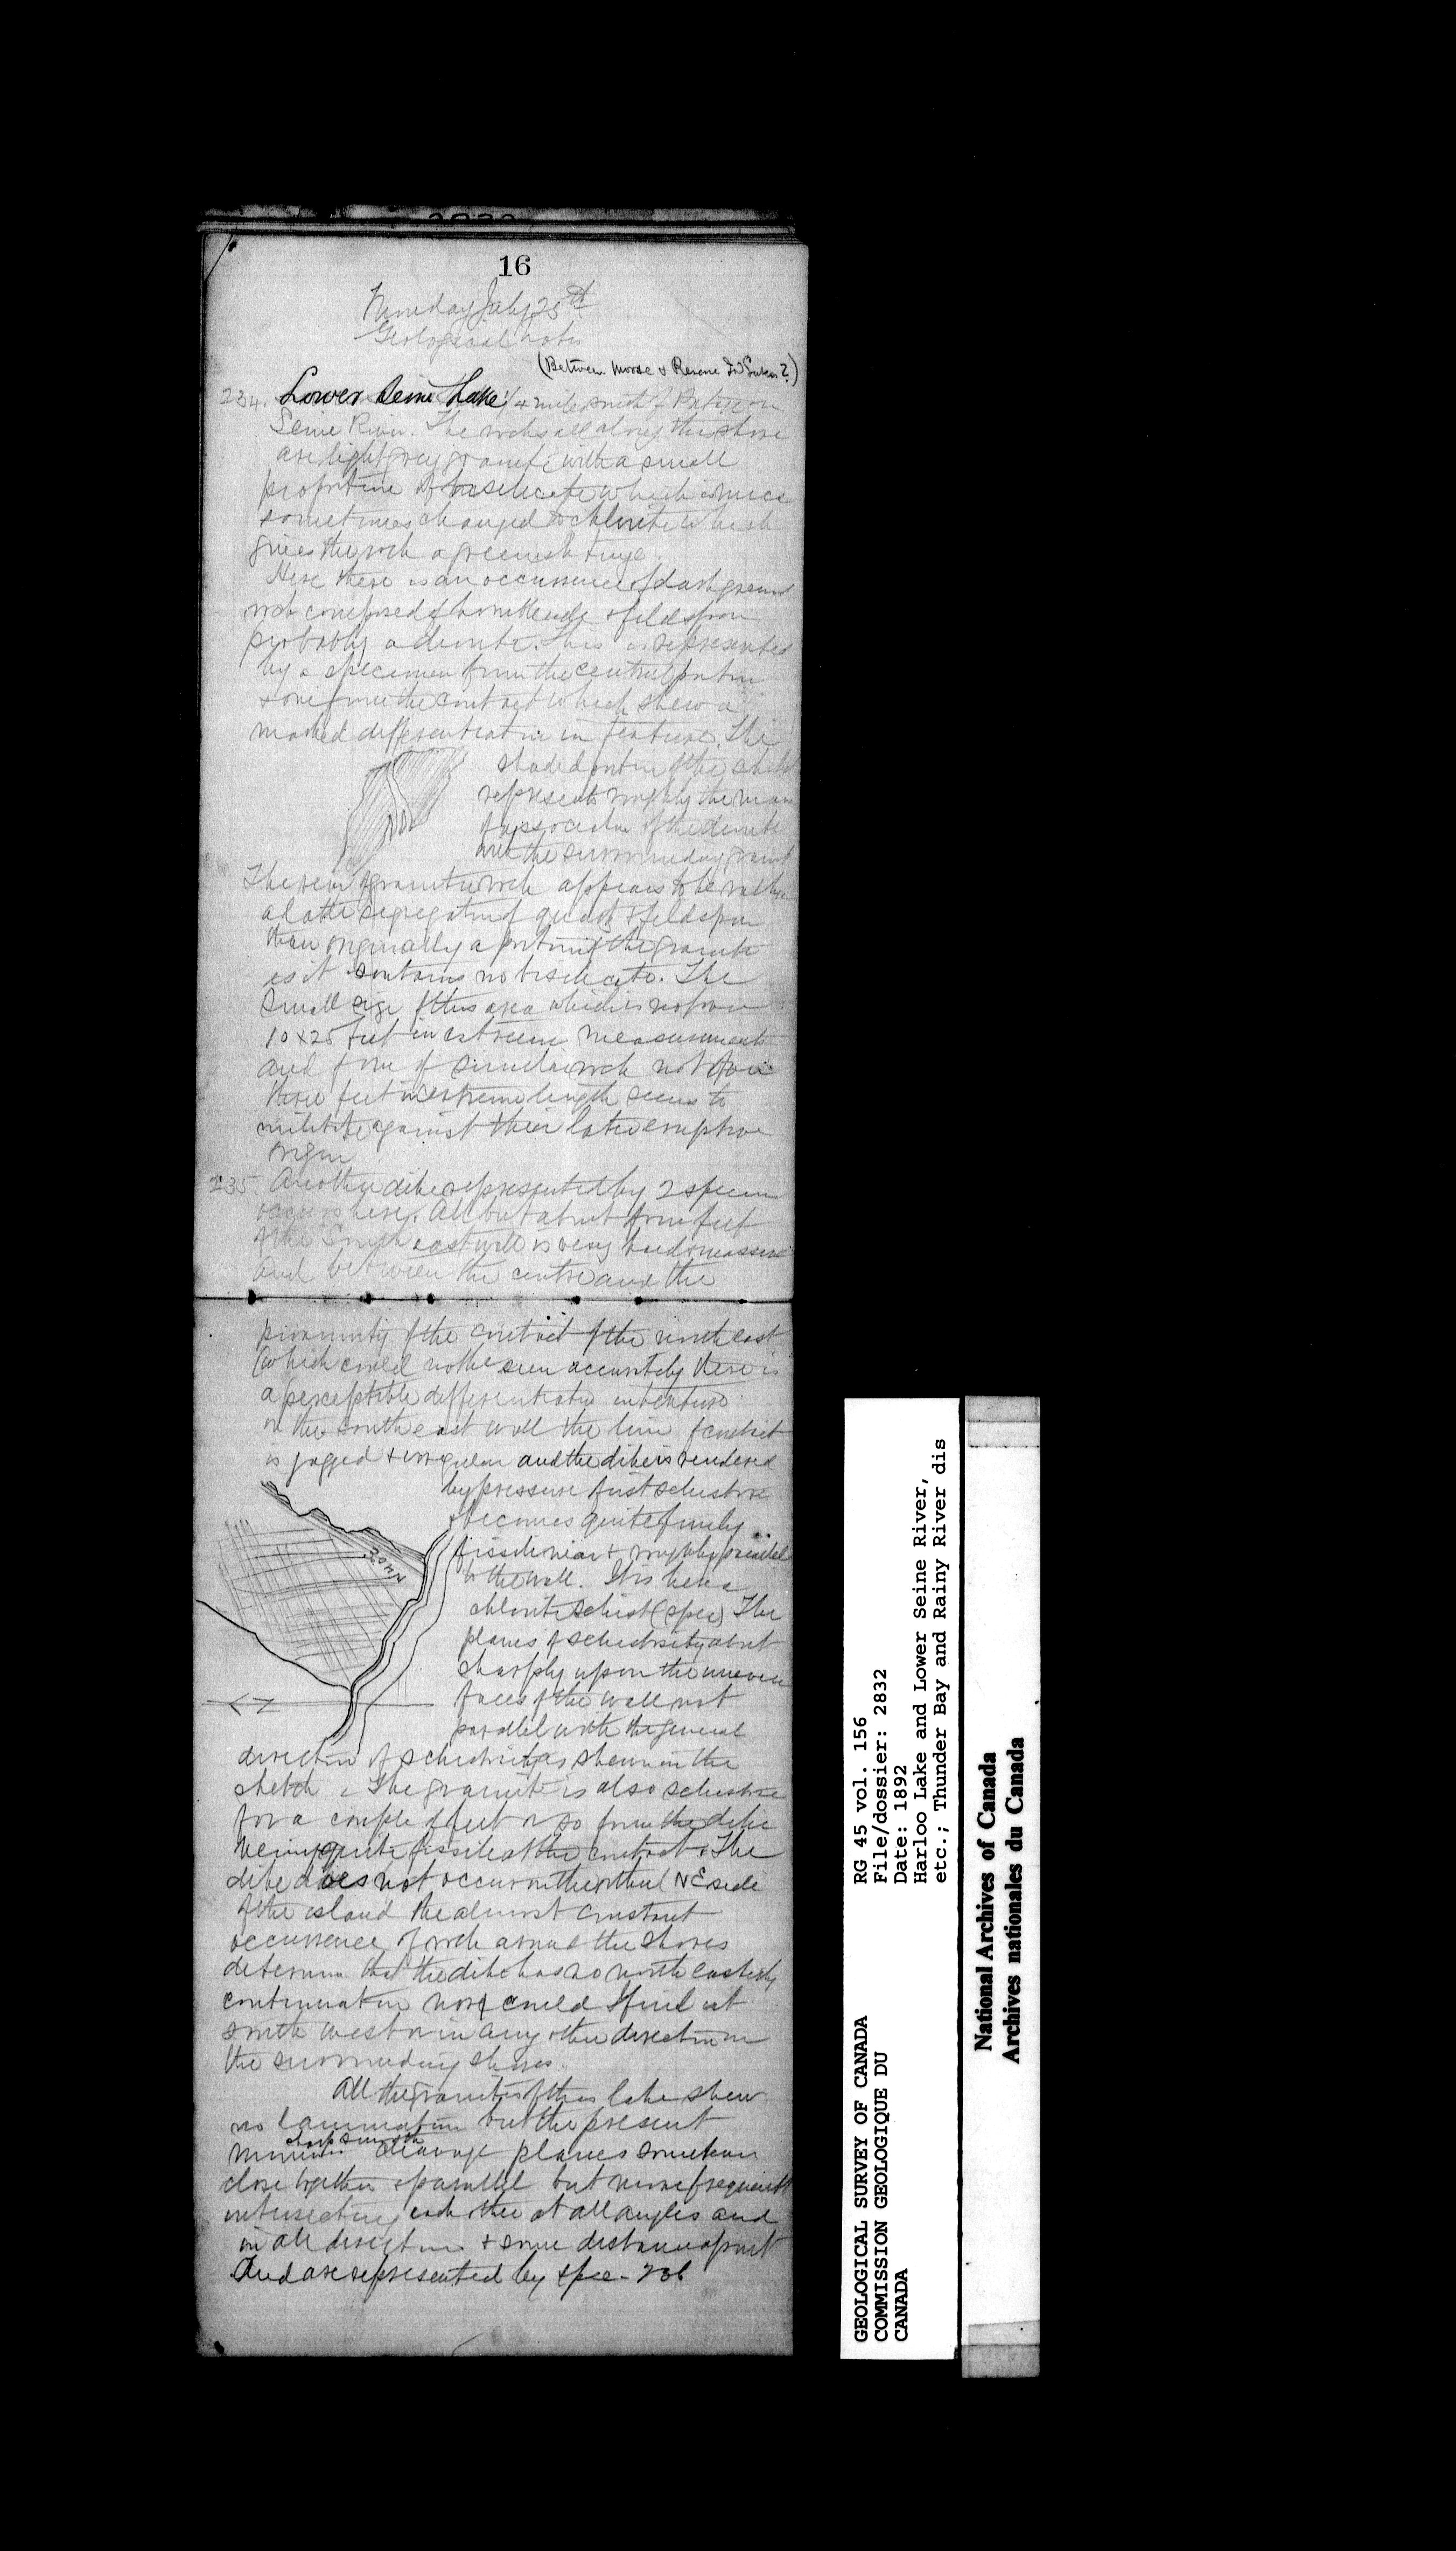 16
July 25th
Geological notes
(Between Moose &
234. Lower Seine Lake 1/4 mile south of
Seine River. The rocks all along this shore
are light grey granite with a small
proportion of bisilicate which is mica
sometimes changed to chlorite which
gives the rock a greenish tinge.
Here there is an occurrence of dark green
rock composed of hornblende & feldspar
probably a diorite. This is represented
by a specimen from the central portion
& one from the contact which shew a
marked differentiation in texture. The
shaded portion of the sketch
represents roughly the
of association of the diorite
with the surrounding granite
The vein of granite rock appears to be rather
a later segregation of quartz & feldspar
than originally a portion of the granite
as it contains no bisilicate. The
small size of this area which is not over
10 x 25 feet in extreme measurement
and one of similar rock not over
three feet in extreme length seems to
militate against their later eruptive
origin
235. Another dike represented by 2 specimens
occurs here. All but about four feet
of the South east wall is very hard & massive
and between the centre and the
proximity of the contact of the north east
(which could not be seen accurately there is
a perceptible differentiation in texture.
On the south east wall the line of contact
is jagged & irregular and the dike is rendered
by pressure first schistose
& becomes quite finely
fissile near & roughly parallel
to the wall. It is here a
chlorite schist (spec) The
planes of schistosity abut
sharply upon the uneven
faces of the wall not
parallel with the general
direction of schistosity as shewn in the
sketch. The granite is also schistose
for a couple of feet or so from the dike
being quite fissile at the contact. The
dike does not occur on the other NE side
of the island the almost constant
occurrence of rock around the shores
determine that the dike has no north easterly
continuation nor could I find it
south west or in any other direction on
the surrounding shores.
All the granites of this lake shew
no lamination but they present
sharp smooth
cleavage planes sometimes
close together & parallel but more frequently
intersecting each other at all angles and
in all directions & some distance apart
And are represented by spec. 236
GEOLOGICAL SURVEY OF CANADA
COMMISSION GEOLOGIQUE DU
CANADA
RG 45 vol. 156
File/dossier: 2832
Date: 1892
Harloo Lake and Lower Seine River,
etc.; Thunder Bay and Rainy River dis
National Archives of Canada
Archives nationales du Canada